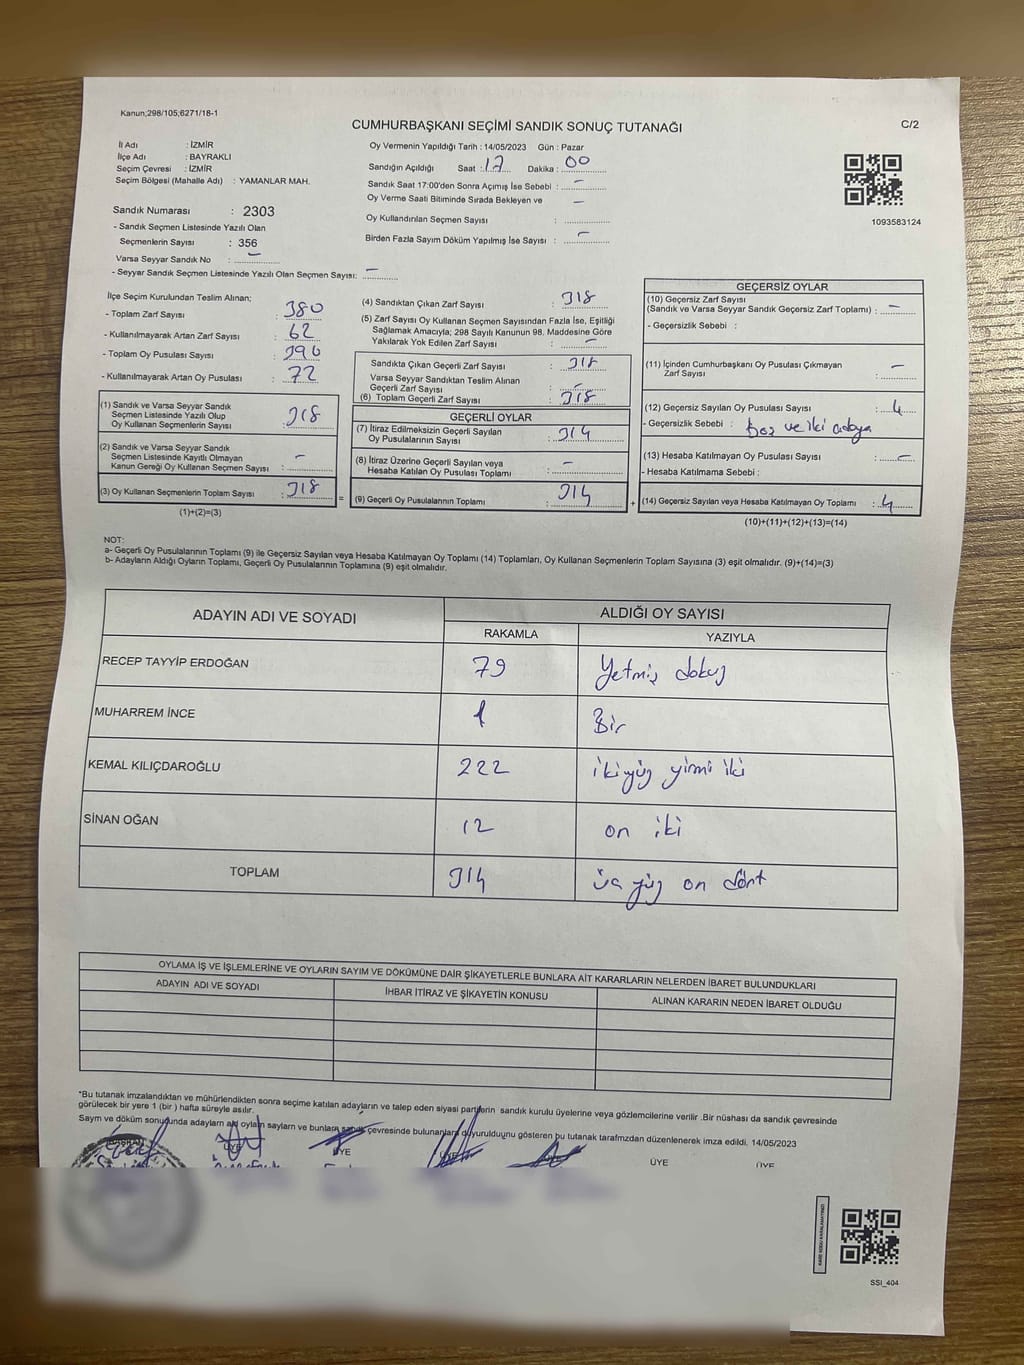 Kanun;298/105;6271/18-1
CUMHURBAŞKANI SEÇİMİ SANDIK SONUÇ TUTANAĞI
C/2
İl Adı : İZMİR
İlçe Adı : BAYRAKLI
Seçim Çevresi : İZMİR
Seçim Bölgesi (Mahalle Adı) : YAMANLAR MAH.
Sandık Numarası : 2303
- Sandık Seçmen Listesinde Yazılı Olan
Seçmenlerin Sayısı : 356
Varsa Seyyar Sandık No : -
- Seyyar Sandık Seçmen Listesinde Yazılı Olan Seçmen Sayısı: -
Oy Vermenin Yapıldığı Tarih : 14/05/2023 Gün : Pazar
Sandığın Açıldığı Saat : 17 Dakika : 00
Sandık Saat 17:00'den Sonra Açımış İse Sebebi : -
Oy Verme Saati Bitiminde Sırada Bekleyen ve -
Oy Kullandırılan Seçmen Sayısı :
Birden Fazla Sayım Döküm Yapılmış İse Sayısı : -
1093583124
İlçe Seçim Kurulundan Teslim Alınan;
- Toplam Zarf Sayısı : 380
- Kullanılmayarak Artan Zarf Sayısı : 62
- Toplam Oy Pusulası Sayısı : 390
- Kullanılmayarak Artan Oy Pusulası : 72
(1) Sandık ve Varsa Seyyar Sandık
Seçmen Listesinde Yazılı Olup
Oy Kullanan Seçmenlerin Sayısı : 318
(2) Sandık ve Varsa Seyyar Sandık
Seçmen Listesinde Kayıtlı Olmayan
Kanun Gereği Oy Kullanan Seçmen Sayısı : -
(3) Oy Kullanan Seçmenlerin Toplam Sayısı : 318
(1)+(2)=(3)
=
(4) Sandıktan Çıkan Zarf Sayısı : 318
(5) Zarf Sayısı Oy Kullanan Seçmen Sayısından Fazla İse, Eşitliği
Sağlamak Amacıyla; 298 Sayılı Kanunun 98. Maddesine Göre
Yakılarak Yok Edilen Zarf Sayısı : -
Sandıkta Çıkan Geçerli Zarf Sayısı : 318
Varsa Seyyar Sandıktan Teslim Alınan
Geçerli Zarf Sayısı : -
(6) Toplam Geçerli Zarf Sayısı : 318
GEÇERLİ OYLAR
(7) İtiraz Edilmeksizin Geçerli Sayılan
Oy Pusulalarının Sayısı : 314
(8) İtiraz Üzerine Geçerli Sayılan veya
Hesaba Katılan Oy Pusulası Toplamı : -
(9) Geçerli Oy Pusulalarının Toplamı : 314
+
GEÇERSİZ OYLAR
(10) Geçersiz Zarf Sayısı
(Sandık ve Varsa Seyyar Sandık Geçersiz Zarf Toplamı) : -
- Geçersizlik Sebebi :
(11) İçinden Cumhurbaşkanı Oy Pusulası Çıkmayan
Zarf Sayısı : -
(12) Geçersiz Sayılan Oy Pusulası Sayısı : 4
- Geçersizlik Sebebi : boş ve iki adaya
(13) Hesaba Katılmayan Oy Pusulası Sayısı : -
- Hesaba Katılmama Sebebi :
(14) Geçersiz Sayılan veya Hesaba Katılmayan Oy Toplamı : 4
(10)+(11)+(12)+(13)=(14)
NOT:
a- Geçerli Oy Pusulalarının Toplamı (9) ile Geçersiz Sayılan veya Hesaba Katılmayan Oy Toplamı (14) Toplamları, Oy Kullanan Seçmenlerin Toplam Sayısına (3) eşit olmalıdır. (9)+(14)=(3)
b- Adayların Aldığı Oyların Toplamı, Geçerli Oy Pusulalarının Toplamına (9) eşit olmalıdır.
ADAYIN ADI VE SOYADI ALDIĞI OY SAYISI
RAKAMLA YAZIYLA
RECEP TAYYİP ERDOĞAN 79 Yetmiş dokuz
MUHARREM İNCE 1 Bir
KEMAL KILIÇDAROĞLU 222 ikiyüz yirmi iki
SİNAN OĞAN 12 on iki
TOPLAM 314 üç yüz on dört
OYLAMA İŞ VE İŞLEMLERİNE VE OYLARIN SAYIM VE DÖKÜMÜNE DAİR ŞİKAYETLERLE BUNLARA AİT KARARLARIN NELERDEN İBARET BULUNDUKLARI
ADAYIN ADI VE SOYADI İHBAR İTİRAZ VE ŞİKAYETİN KONUSU ALINAN KARARIN NEDEN İBARET OLDUĞU
*Bu tutanak imzalandıktan ve mühürlendikten sonra seçime katılan adayların ve talep eden siyasi partilerin sandık kurulu üyelerine veya gözlemcilerine verilir .Bir nüshası da sandık çevresinde
görülecek bir yere 1 (bir ) hafta süreyle asılır.
Sayım ve döküm sonuğunda adayların aldı oyların sayları ve bunların sandık çevresinde bulunanlara duyurulduğunu gösteren bu tutanak tarafımızdan düzenlenerek imza edildi. 14/05/2023
BAŞKAN ÜYE ÜYE ÜYE ÜYE ÜYE ÜYE
SSI_404